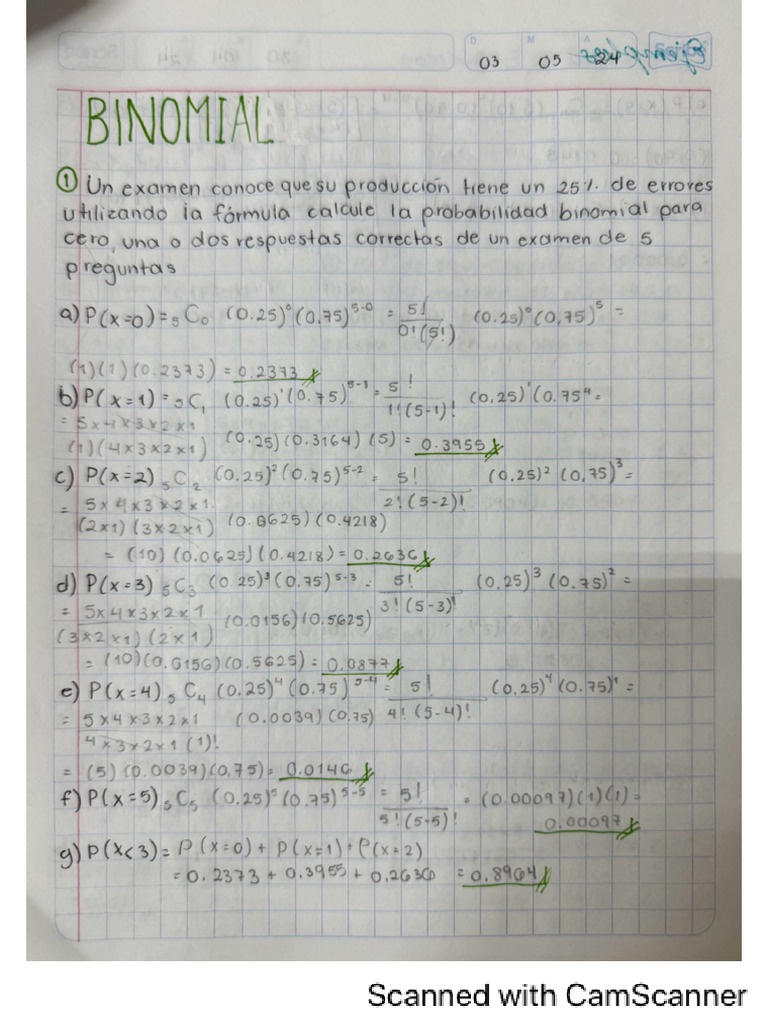 D M A
03 05 24
BINOMIAL
① Un examen conoce que su producción tiene un 25%. de errores
utilizando la fórmula calcule la probabilidad binomial para
cero, una o dos respuestas correctas de un examen de 5
preguntas
a) P(x=0) = ₅C₀ (0.25)⁰ (0.75)⁵⁻⁰ = 5! / 0!(5!) (0.25)⁰ (0,75)⁵ =
(1)(1)(0.2373) = 0.2373
b) P(x=1) = ₅C₁ (0.25)¹(0.75)⁵⁻¹ = 5! / 1!(5-1)! (0,25)¹(0.75⁴ =
= 5x4x3x2x1 / (1)(4x3x2x1) (0.25)(0.3164)(5) = 0.3955
c) P(x=2) ₅C₂ (0.25)²(0.75)⁵⁻² = 5! / 2!(5-2)! (0.25)² (0,75)³ =
= 5x4x3x2x1. / (2x1)(3x2x1) (0.0625)(0.4218)
= (10)(0.0625)(0.4218) = 0.2636
d) P(x=3) ₅C₃ (0.25)³(0.75)⁵⁻³ = 5! / 3!(5-3)! (0,25)³ (0.75)² =
= 5x4x3x2x1 / (3x2x1)(2x1) (0.0156)(0.5625)
= (10)(0.0156)(0.5625) = 0.0877
e) P(x=4) ₅C₄ (0.25)⁴(0.75)⁵⁻⁴ = 5! / 4!(5-4)! (0,25)⁴ (0.75)¹ =
= 5x4x3x2x1 / 4x3x2x1 (1)! (0.0039)(0.75)
= (5)(0.0039)(0,75) = 0.0146
f) P(x=5) ₅C₅ (0.25)⁵ (0.75)⁵⁻⁵ = 5! / 5!(5-5)! = (0.00097)(1)(1) =
0.00097
g) P(x<3) = P(x=0) + P(x=1) + P(x=2)
= 0.2373 + 0.3955 + 0.2636 = 0.8964
Scanned with CamScanner